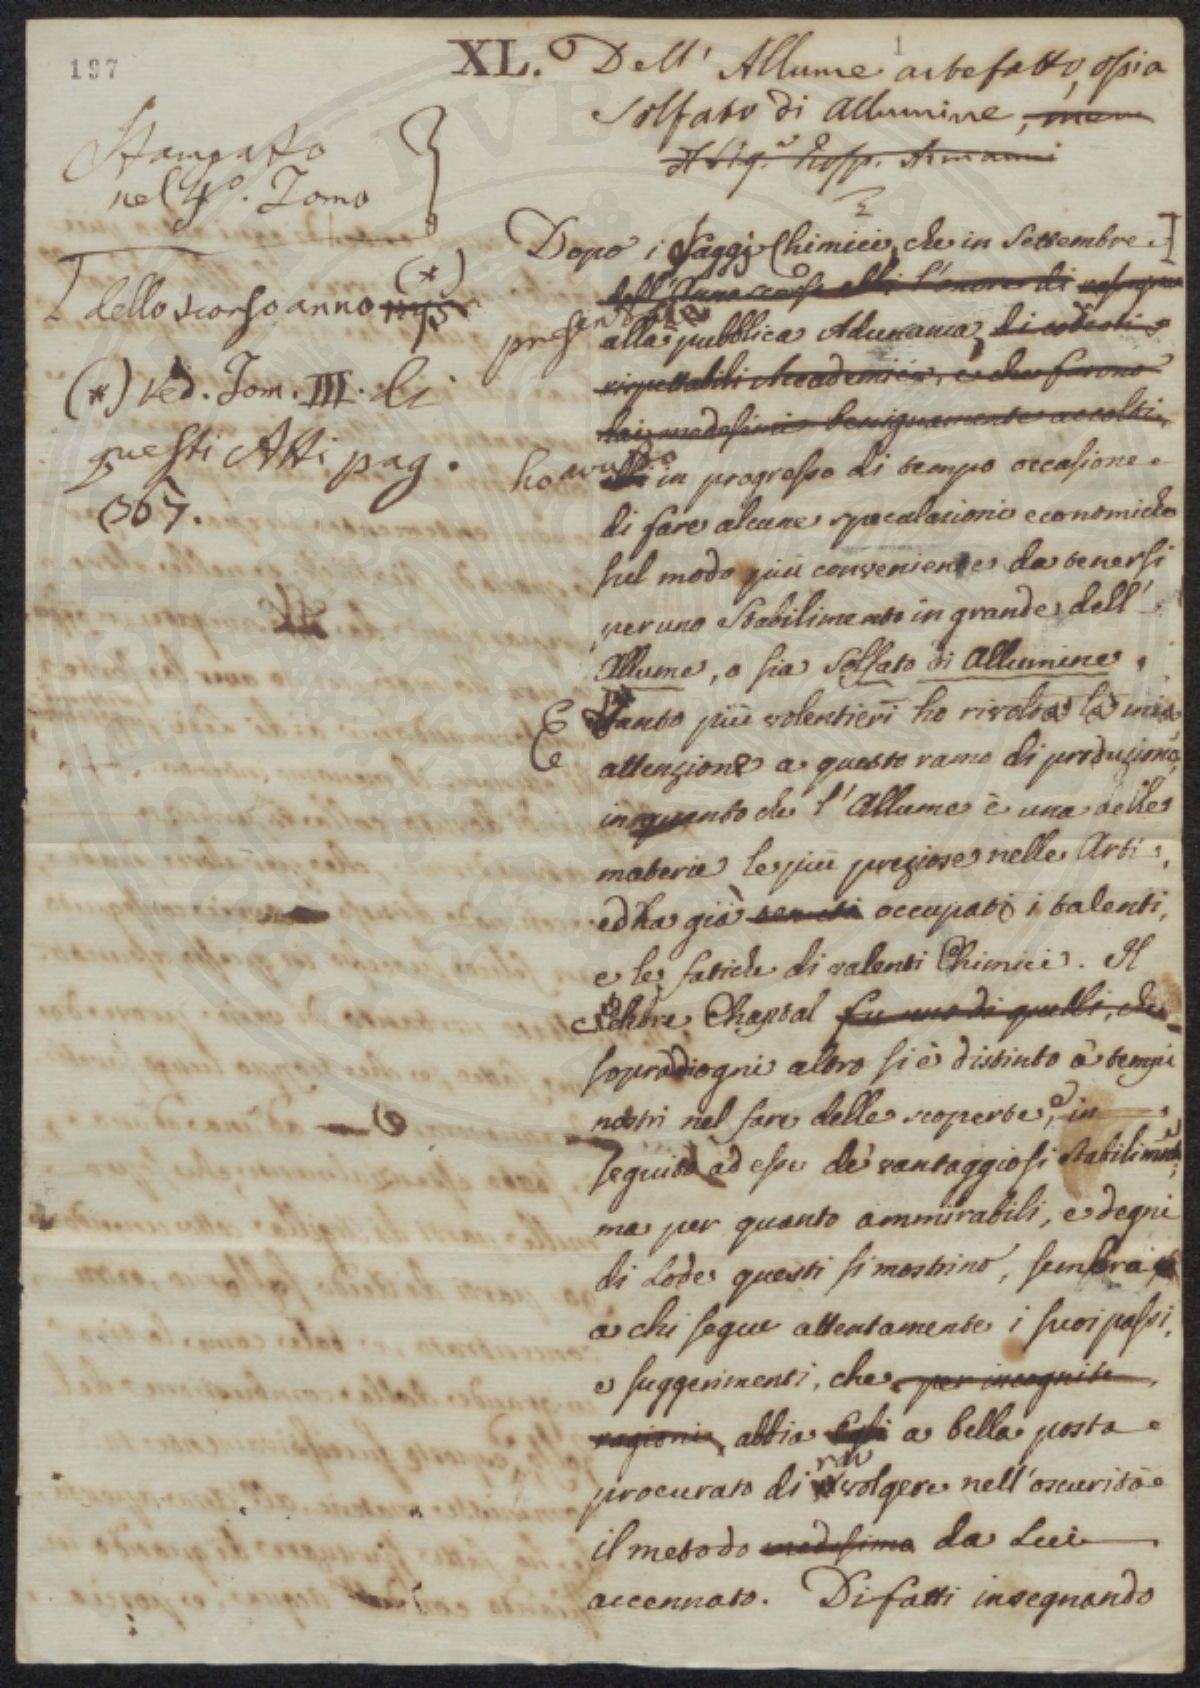 197
1
XL. Dell' Allume artefatto, ossia
Solfato di Allumine,
Stampato
nel 4º. Tomo
Dopo i Saggi Chimici, che in Settembre
dell'Anno scorso ebbi l'onore di
[dello scorso anno (*)
presentati
alla pubblica Adunanza, di codesti
rispettabili Accademici, e che furono
dai medesimi benignamente accolti,
(*) Ved. Tom. III. di
questi Atti pag.
367.
ho avuto
in progresso di tempo occasione
di fare alcune speculazioni economiche
sul modo più conveniente da tenersi
per uno Stabilimento in grande dell'
Allume, o sia Solfato di Allumine.
E tanto più volentieri ho rivolta la mia
attenzione a questo ramo di produzione,
inquanto che l'Allume è una delle
materie le più preziose nelle Arti,
ed ha già occupati i talenti,
e le fatiche di valenti Chimici. Il
celebre Chaptal fu uno di quelli, che
sopra d'ogni altro si è distinto a' tempi
nostri nel fare delle scoperte, e in
seguito ad esse de' vantaggiosi stabilimenti;
ma per quanto ammirabili, e degni
di Lode questi si mostrino, sembra
a chi segue attentamente i suoi passi,
e suggerimenti, che per incognite
ragioni, abbia Egli a bella posta
procurato di rivolgere nell'oscurità
il metodo medesimo da Lui
accennato. Di fatti insegnando